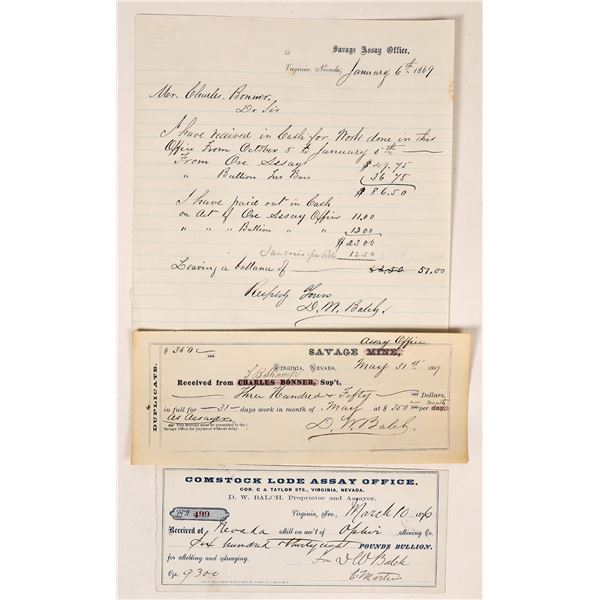 Savage Assay Office,
Virginia, Nevada, January 6th 1869
Mr. Charles Bonner.
Dr Sir
I have received in Cash for Work done in this
Office From October 5 to January 5th
From Ore Assays $49.75
" Bullion 36 75
$86.50
I have paid out in Cash
on Act of Ore Assay Office 11.00
" " " Bullion " " 12.00
$23.00
12.50
Leaving a ballance of 63.50 51.00
Respcty Yours
D. M. Balch.
$350
Assay Office
SAVAGE MINE,
VIRGINIA, NEVADA. May 31st 1869
DUPLICATE.
Received from CHARLES BONNER, Sup't,
Three Hundred & Fifty Dollars,
in full for 31 days work in month of May at $350 per day. month
As Assayer
This Receipt must be presented to the
Savage Office for payment without delay.
D. W. Balch.
COMSTOCK LODE ASSAY OFFICE.
COR. C & TAYLOR STS., VIRGINIA, NEVADA.
D. W. BALCH, Proprietor and Assayer.
No 499 Virginia, Nev. March 10 1870
Received of Nevada Mill on acc't of Ophir Mining Co.
Six hundred & thirty eight POUNDS BULLION.
for melting and assaying. For D W Balch
Ozs. 9300 C Morten